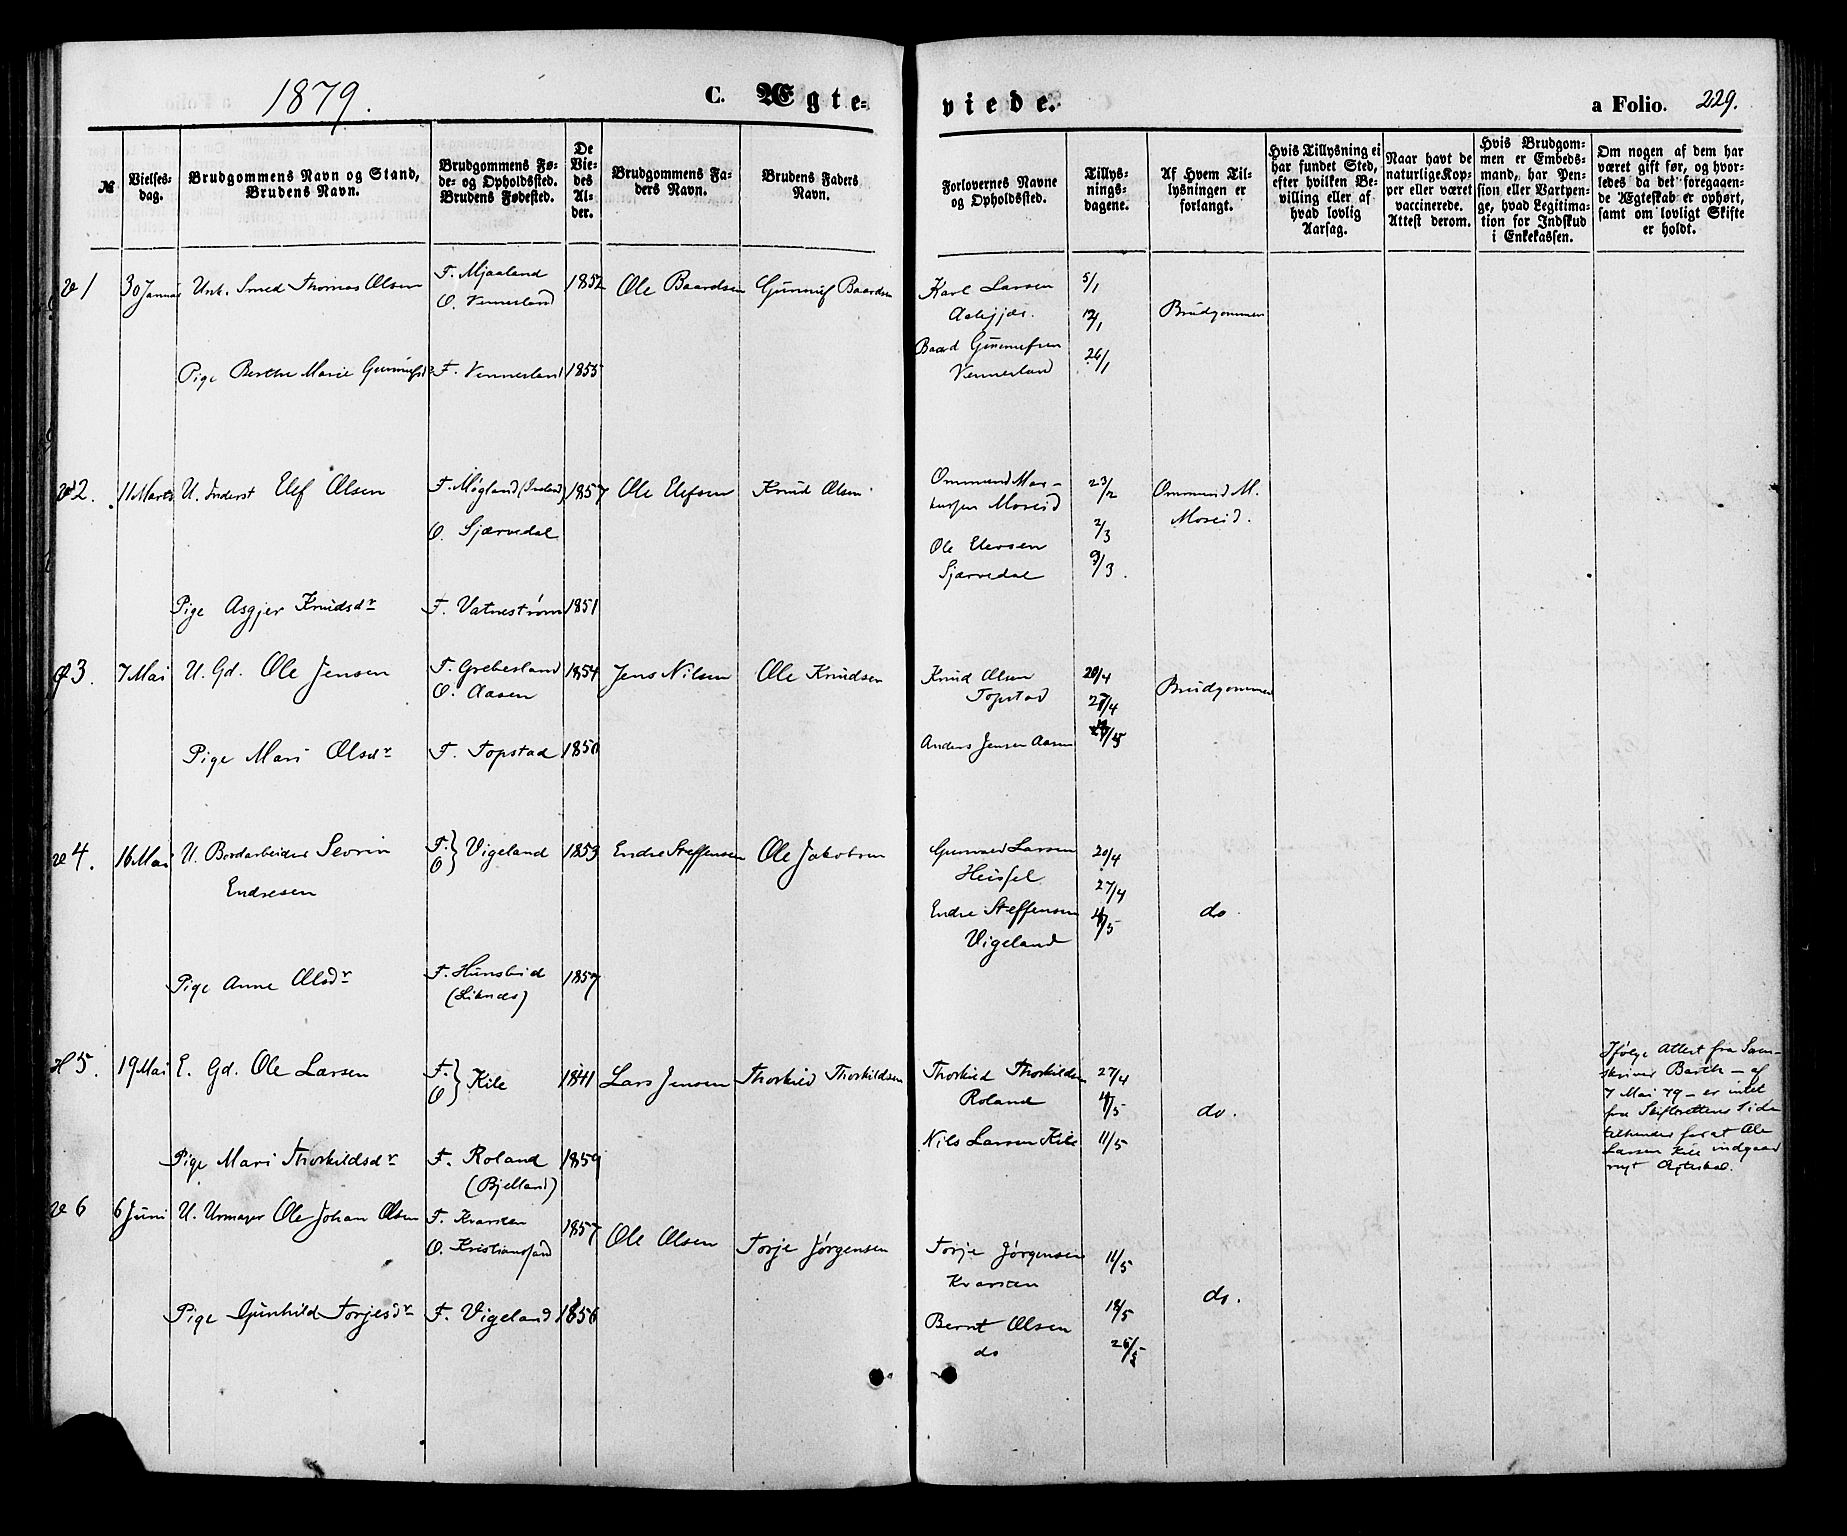 1879.
C. Ægte-
viede.
a Folio. 229.
№
Vielses-
dag.
Brudgommens Navn og Stand,
Brudens Navn.
Brudgommens Fø-
de- og Opholdssted.
Brudens Fødested.
De
Vie-
des
Al-
der.
Brudgommens Fa-
ders Navn.
Brudens Faders
Navn.
Forlovernes Navne
og Opholdssted.
Tillys-
nings-
dagene.
Af Hvem Til-
lysningen er
forlangt.
Hvis Tillysning ei
har fundet Sted,
efter hvilken Be-
villing eller af
hvad lovlig
Aarsag.
Naar havt de
naturlige Kop-
per eller været
vaccinerede.
Attest derom.
Hvis Brudgom-
men er Embeds-
mand, har Pen-
sion eller Vartpen-
ge, hvad Legitima-
tion for Indskud
i Enkekassen.
Om nogen af dem har
været gift før, og hvor-
ledes da det foregaaen-
de Ægteskab er ophørt,
samt om lovligt Skifte
er holdt.
v 1 30 Januar Unk. Smed Thomas Olsen F. Mjaaland 1852 Ole Baardsen Gunnuf Baardsen
O. Vennesland
Karl Larsen 5/1
12/1 Brudgommen
Baard Gunnufsen 26/1
Vennesland
Pige Berthe Marie Gunnufsdr F. Vennesland 1855
v 2. 11 Marts U. Inderst Elef Olsen F. Møgland 1857 Ole Elefsen Knud Olsen
O. Sjærvedal
Ommund Mar- 23/2 Ommund M.
Moseid 2/3 Moseid.
Ole Elevsen 9/3.
Sjærvedal
Pige Asgjer Knudsdr F. Vatnestrøm 1851
3. 7 Mai U. Gd. Ole Jensen F. Grebesland 1854 Jens Nilsen Ole Knudsen
O. Aasen
Knud Olsen 20/4 Brudgommen
Topstad 27/4
Anders Jensen Aasen
Pige Mari Olsdr F. Topstad 1850
v 4. 16 Mai U. Bordarbeider Sevrin F. } Vigeland 1853 Endre Steffensen Ole Jakobsen
Endresen O }
Gunvald Larsen 20/4
27/4
Endre Steffensen 4/5 do.
Vigeland
Pige Anne Olsdr F. Hunsbid 1857
H 5. 19 Mai E. Gd. Ole Larsen F. } Kile 1841 Lars Jensen Thorkild Thorkildsen
O }
Thorkild Thorkildsen 27/4
Roland 4/5 do.
Nils Larsen Kile 11/5
Ifølge Attest fra Soren-
skriver Barth – af
7 Mai 79 – er intet
fra Skifterettens Side
til hinder for at Ole
Larsen Kile indgaar
nyt Ægteskab.
Pige Mari Thorkildsdr F. Roland 1859
(Bjelland)
v 6 6 Juni U. Urmager Ole Johan Olsen F. Kvarsten 1857 Ole Olsen Torje Jørgensen
O. Kristianssand
Torje Jørgensen 11/5
Kvarsten do.
18/5
Bernt Olsen
do 25/5
Pige Gunhild Torjesdr F. Vigeland 1856